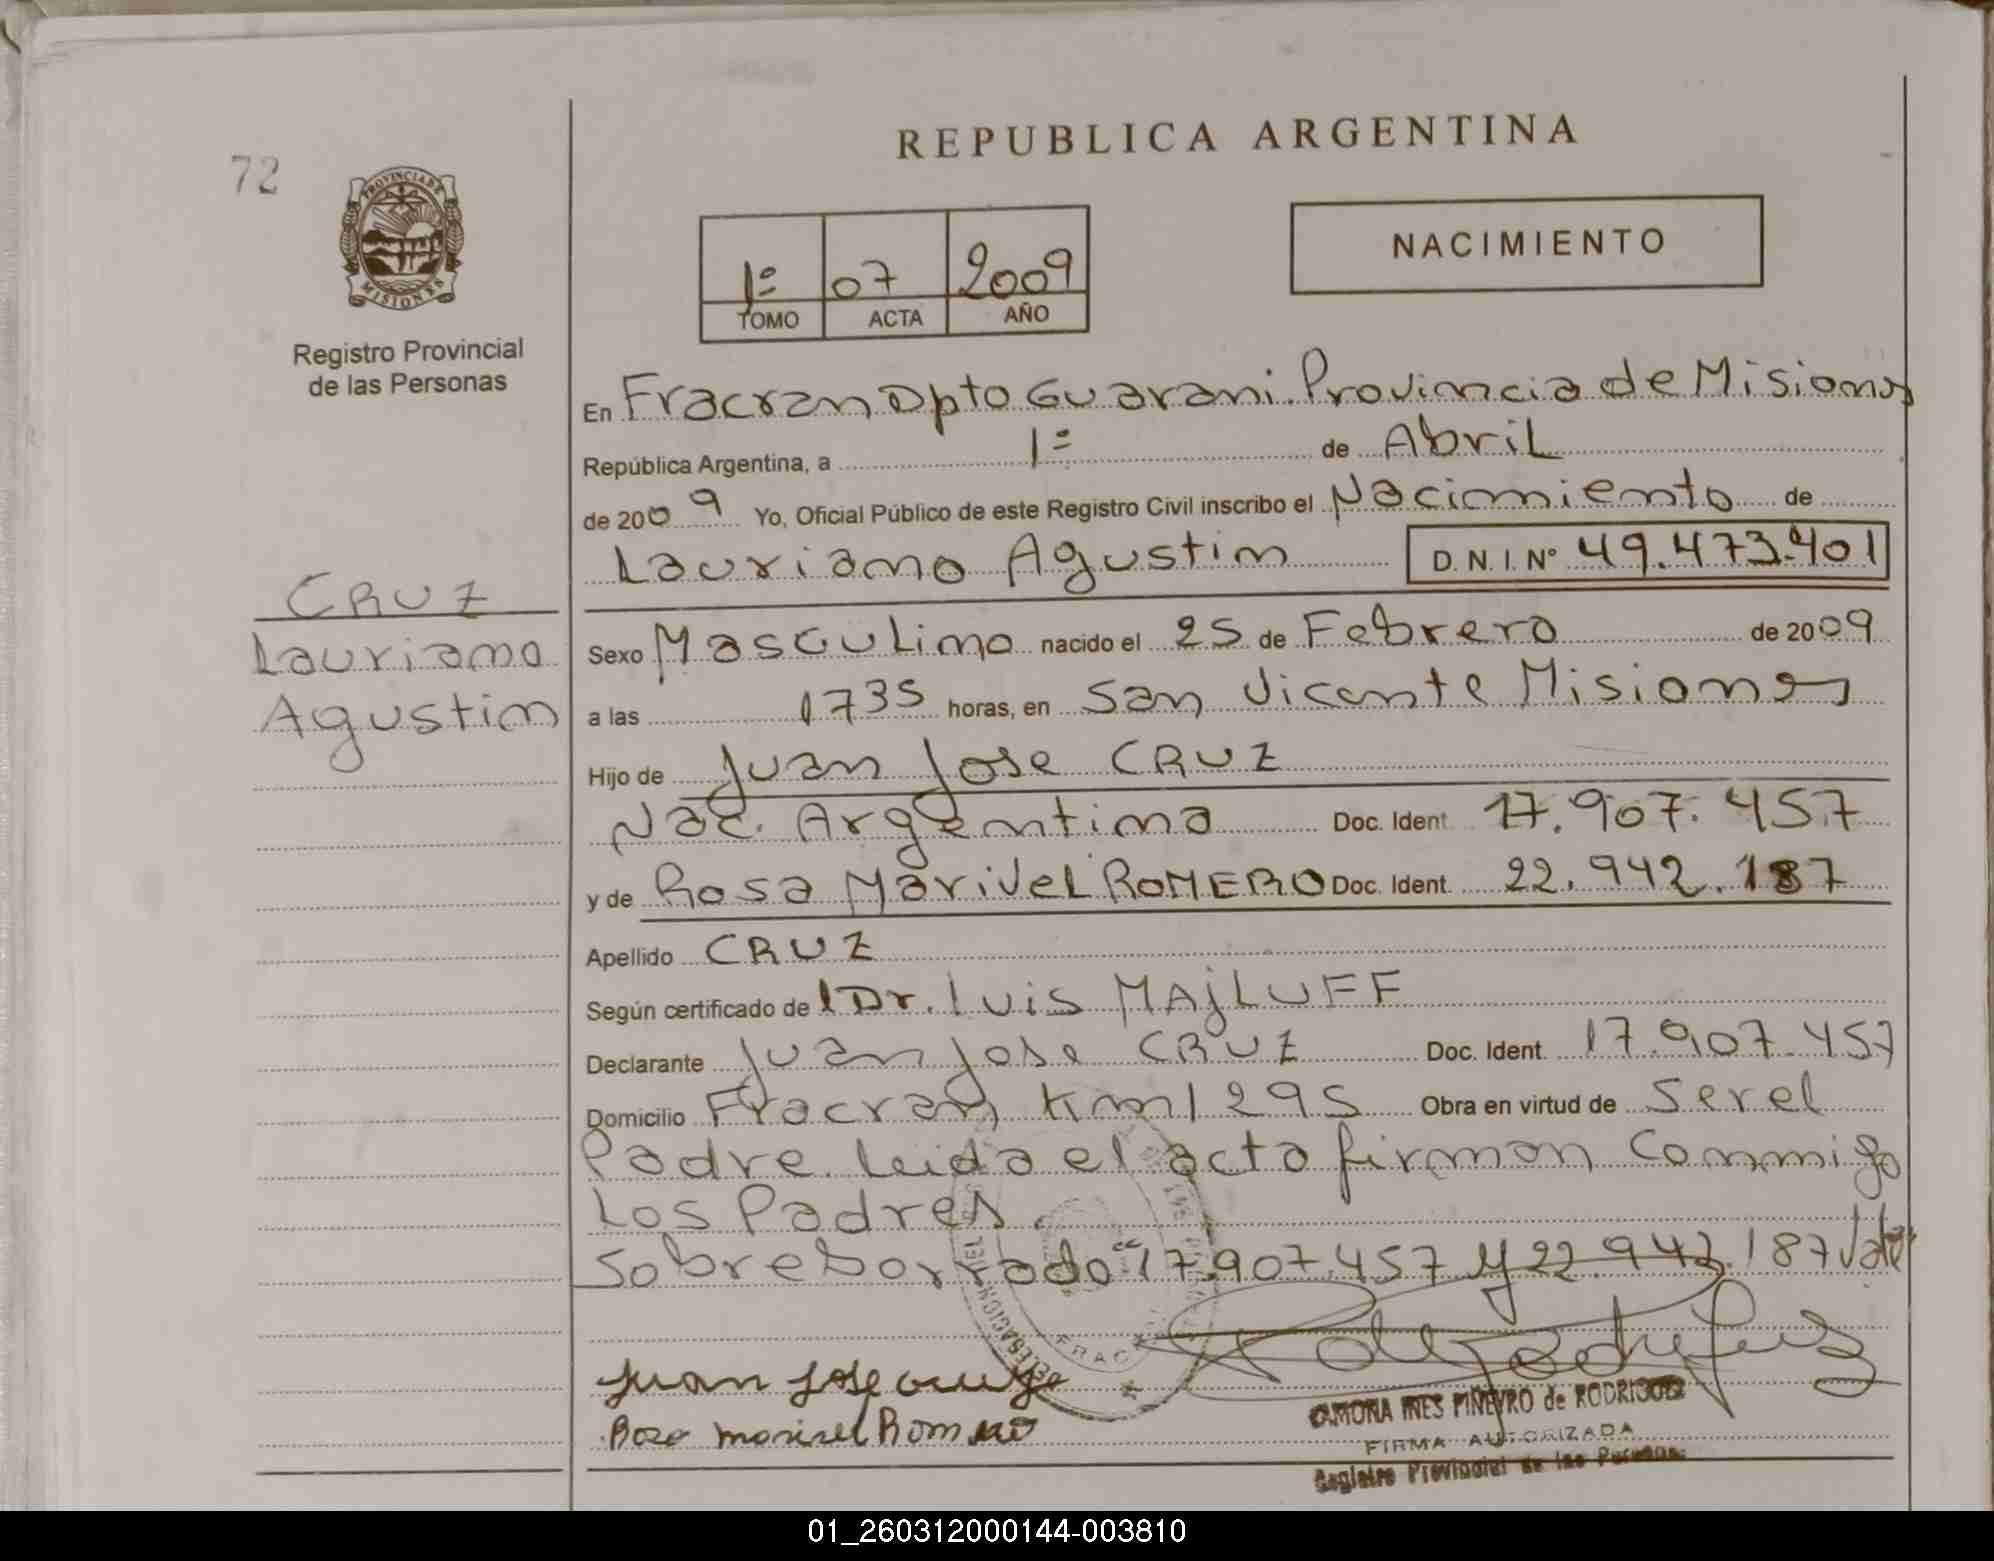 72
PROVINCIA DE
MISIONES
Registro Provincial
de las Personas
REPUBLICA ARGENTINA
1º 07 2009
TOMO ACTA AÑO
NACIMIENTO
En Fracran Dpto Guarani. Provincia de Misiones
República Argentina, a 1º de Abril
de 2009 Yo, Oficial Público de este Registro Civil inscribo el Nacimiento de
Lauriano Agustin D.N.I. Nº 49.473.401
CRUZ
Lauriano
Agustin
Sexo Masculino nacido el 25 de Febrero de 2009
a las 1735 horas, en San Vicente Misiones
Hijo de Juan Jose CRUZ
Nac. Argentina Doc. Ident. 17.907.457
y de Rosa Marivel ROMERO Doc. Ident. 22.942.187
Apellido CRUZ
Según certificado de l Dr. Luis MAjLUFF
Declarante Juan Jose CRUZ Doc. Ident. 17.907.457
Domicilio Fracran Km 1295 Obra en virtud de Ser el
Padre. Leida el acta firman conmigo
Los Padres.
Sobreborrado "17.907.457 y 22.942.187 Vale"
Juan Jose Cruz
Rosa Marivel Romero
RAMONA INES PIÑEYRO de RODRIGUEZ
FIRMA AUTORIZADA
Registro Provincial de las Personas
01_260312000144-003810